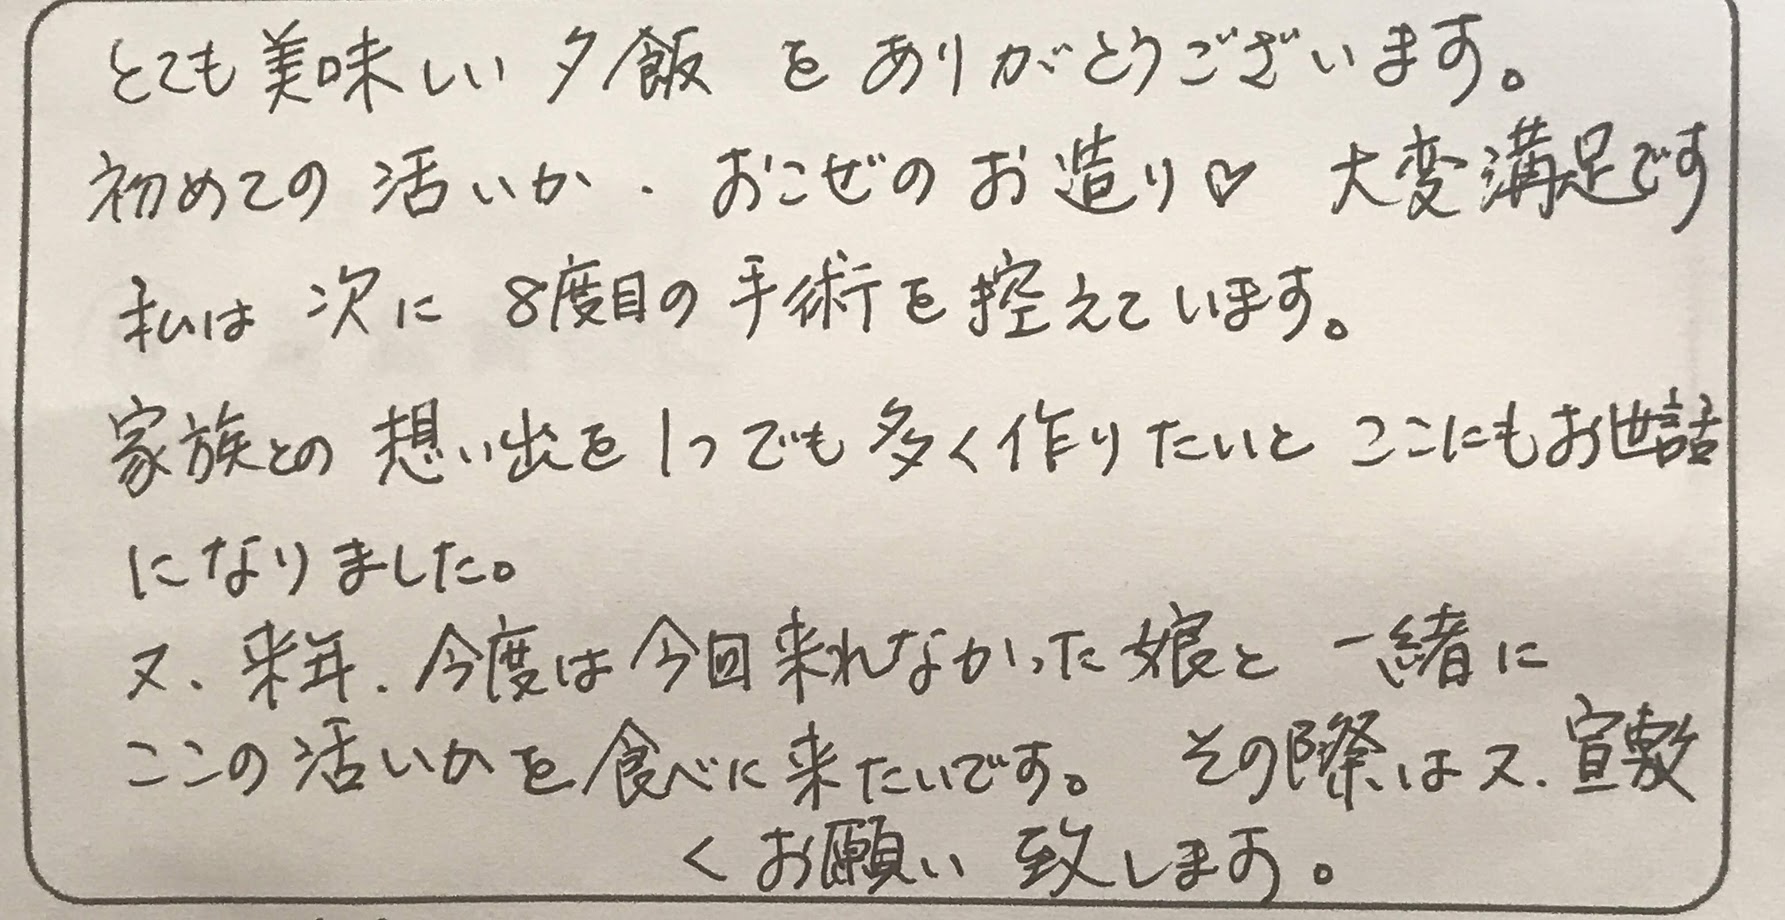 とても美味しい夕飯をありがとうございます。
初めての活いか、おこぜのお造り♡ 大変満足です
私は次に8度目の手術を控えています。
家族との想い出を1つでも多く作りたいとここにもお世話
になりました。
又、来年、今度は今回来れなかった娘と一緒に
ここの活いかを食べに来たいです。 その際は又、宜敷
くお願い致します。